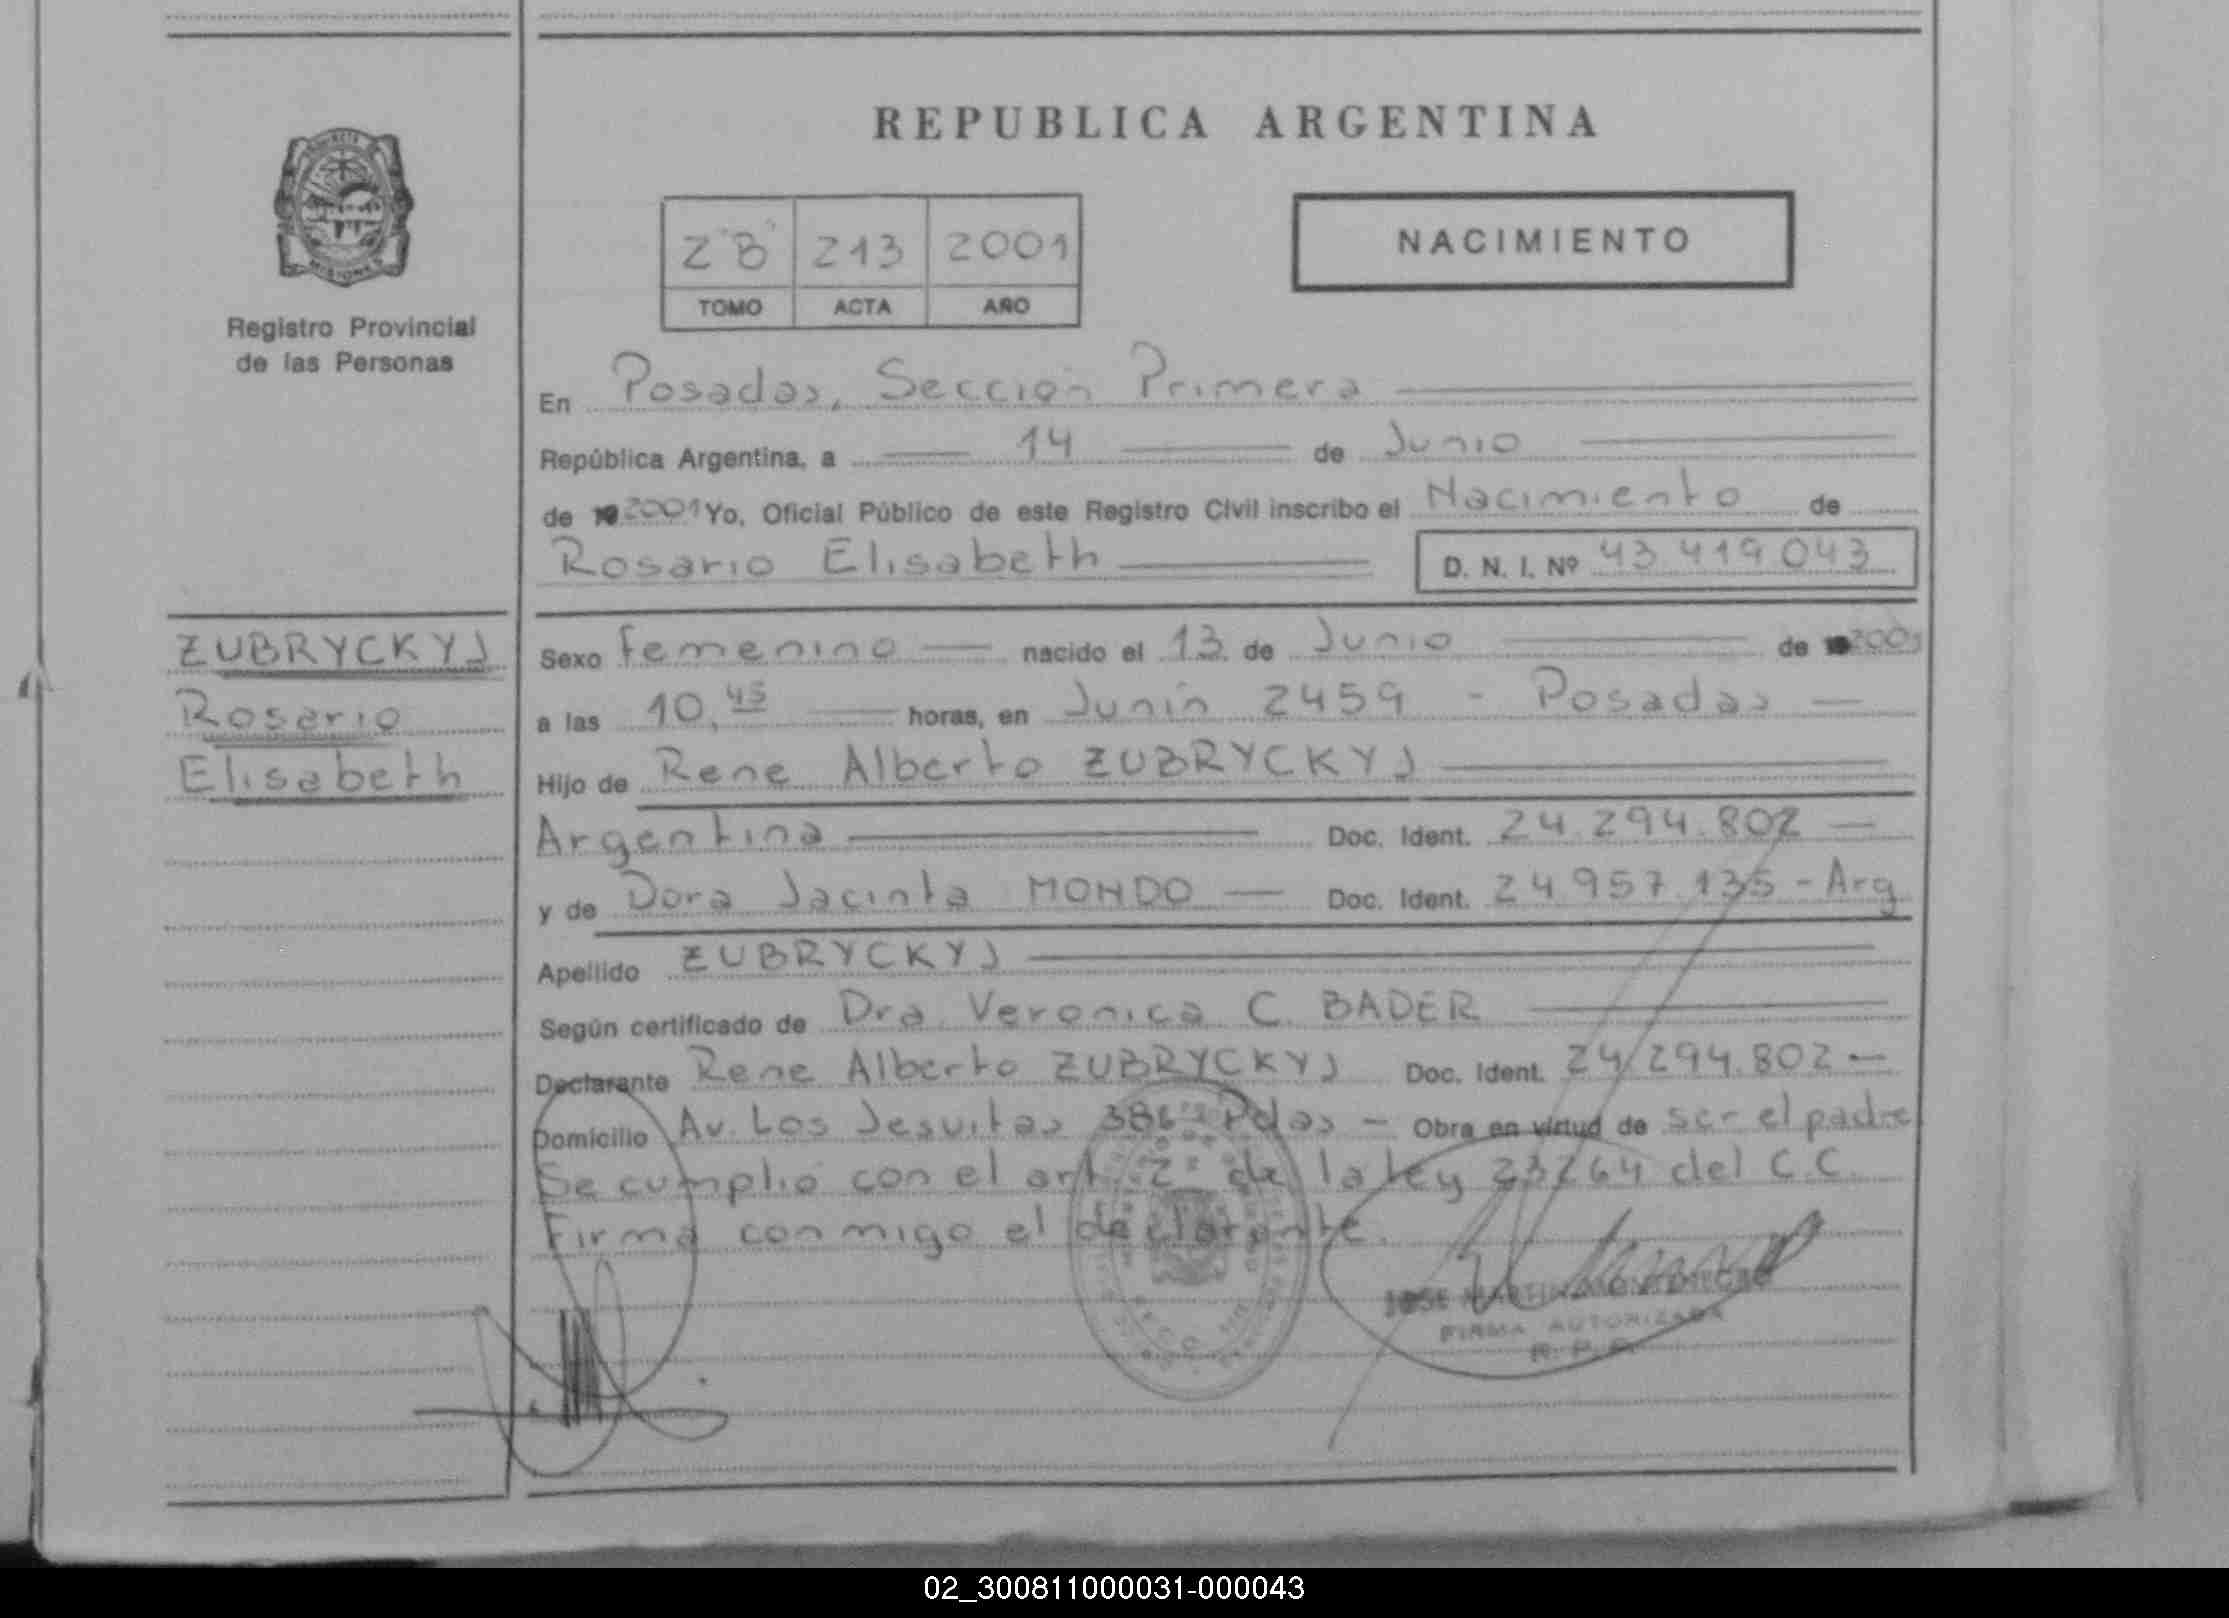 REPUBLICA ARGENTINA
2"B" 213 2001
TOMO ACTA AÑO
NACIMIENTO
MISIONES
Registro Provincial
de las Personas
En Posadas, Sección Primera
República Argentina, a 14 de Junio
de 2001 Yo, Oficial Público de este Registro Civil inscribo el Nacimiento de
Rosario Elisabeth D. N. I. Nº 43.419.043
ZUBRYCKYJ
Rosario
Elisabeth
Sexo femenino nacido el 13 de Junio de 2001
a las 10,45 horas, en Junin 2459 - Posadas
Hijo de Rene Alberto ZUBRYCKYJ
Argentina Doc. Ident. 24.294.802
y de Dora Jacinta MONDO Doc. Ident. 24.957.135 - Arg
Apellido ZUBRYCKYJ
Según certificado de Dra Veronica C. BADER
Declarante Rene Alberto ZUBRYCKYJ Doc. Ident. 24.294.802
Domicilio Av. Los Jesuitas Pdas - Obra en virtud de ser el padre
Se cumplió con el art. 2º de la ley 23264 del C.C.
Firma conmigo el declarante.
JOSE
FIRMA AUTORIZADA
R. P. P.
02_300811000031-000043